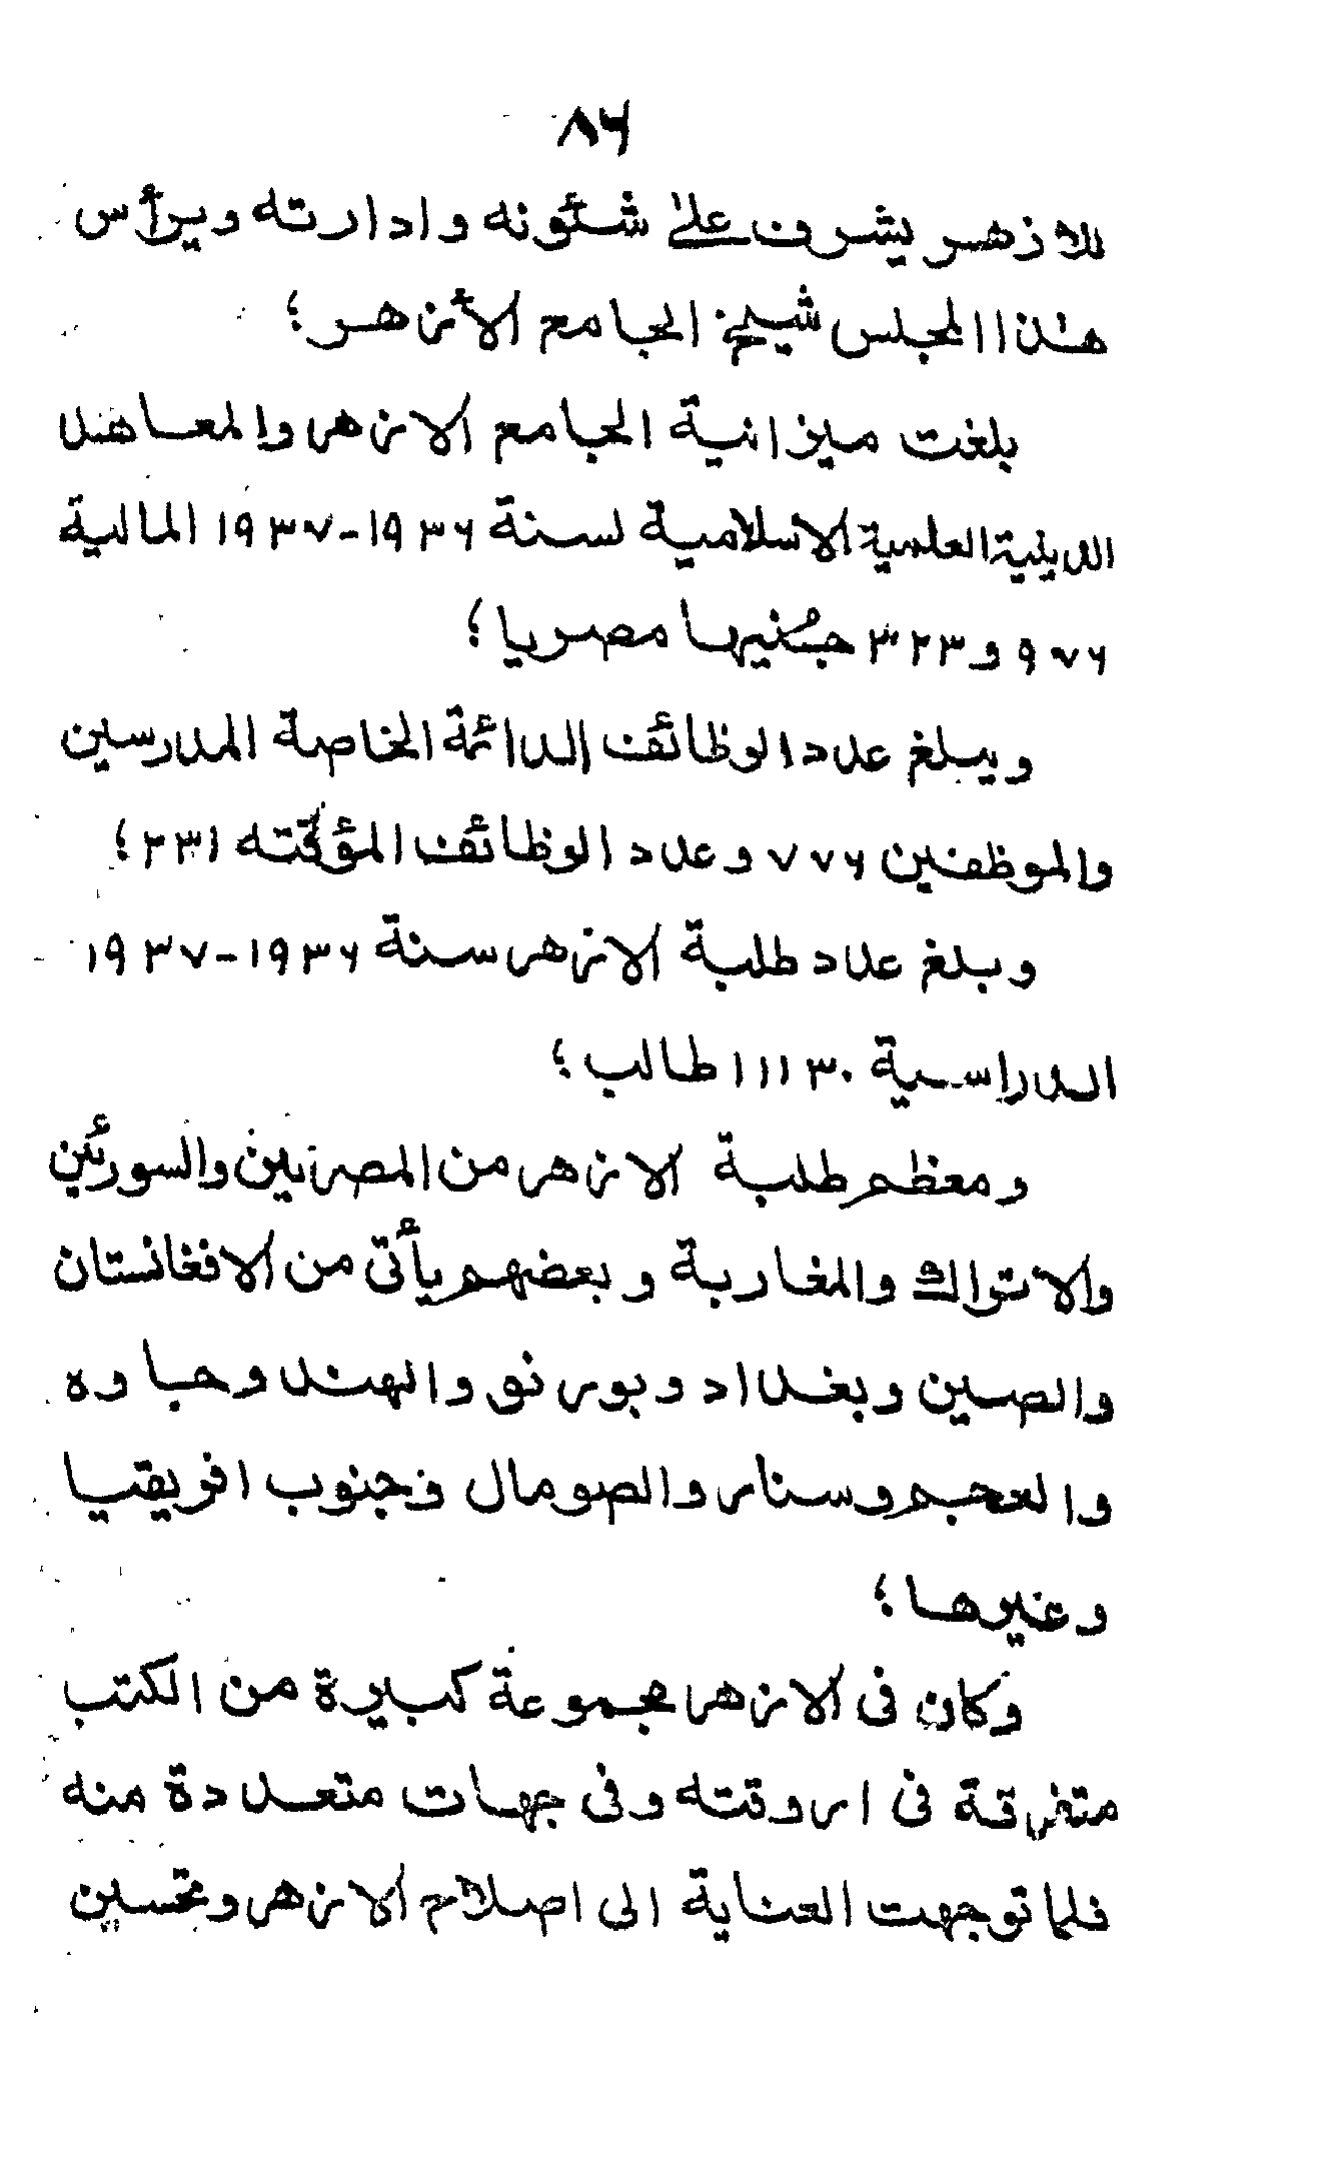 ٨٦
للازهر يشرف على شئونه وادارته ويرأس
هذا المجلس شيخ الجامع الأزهر؛
بلغت ميزانية الجامع الازهر والمعاهد
الدينية العلمية الاسلامية لسنة ١٩٣٦-١٩٣٧ المالية
٩٧٦ و ٣٢٣ جُنيها مصريا؛
ويبلغ عدد الوظائف الدائمة الخاصة المدرسين
والموظفين ٧٧٦ وعدد الوظائف المؤقته ٢٣١؛
وبلغ عدد طلبة الازهر سنة ١٩٣٦-١٩٣٧
الدراسية ١١١٣٠ طالب؛
ومعظم طلبة الازهر من المصريين والسورئين
والاتراك والمغاربة وبعضهم يأتى من الافغانستان
والصين وبغداد وبورنو والهند وجاوه
والعجم وسنار والصومال وجنوب افريقيا
وغيرها؛
وكان فى الازهر مجموعة كبيرة من الكتب
متفرقة فى اروقته وفى جهات متعددة منه
فلما توجهت العناية الى اصلاح الازهر وتحسين